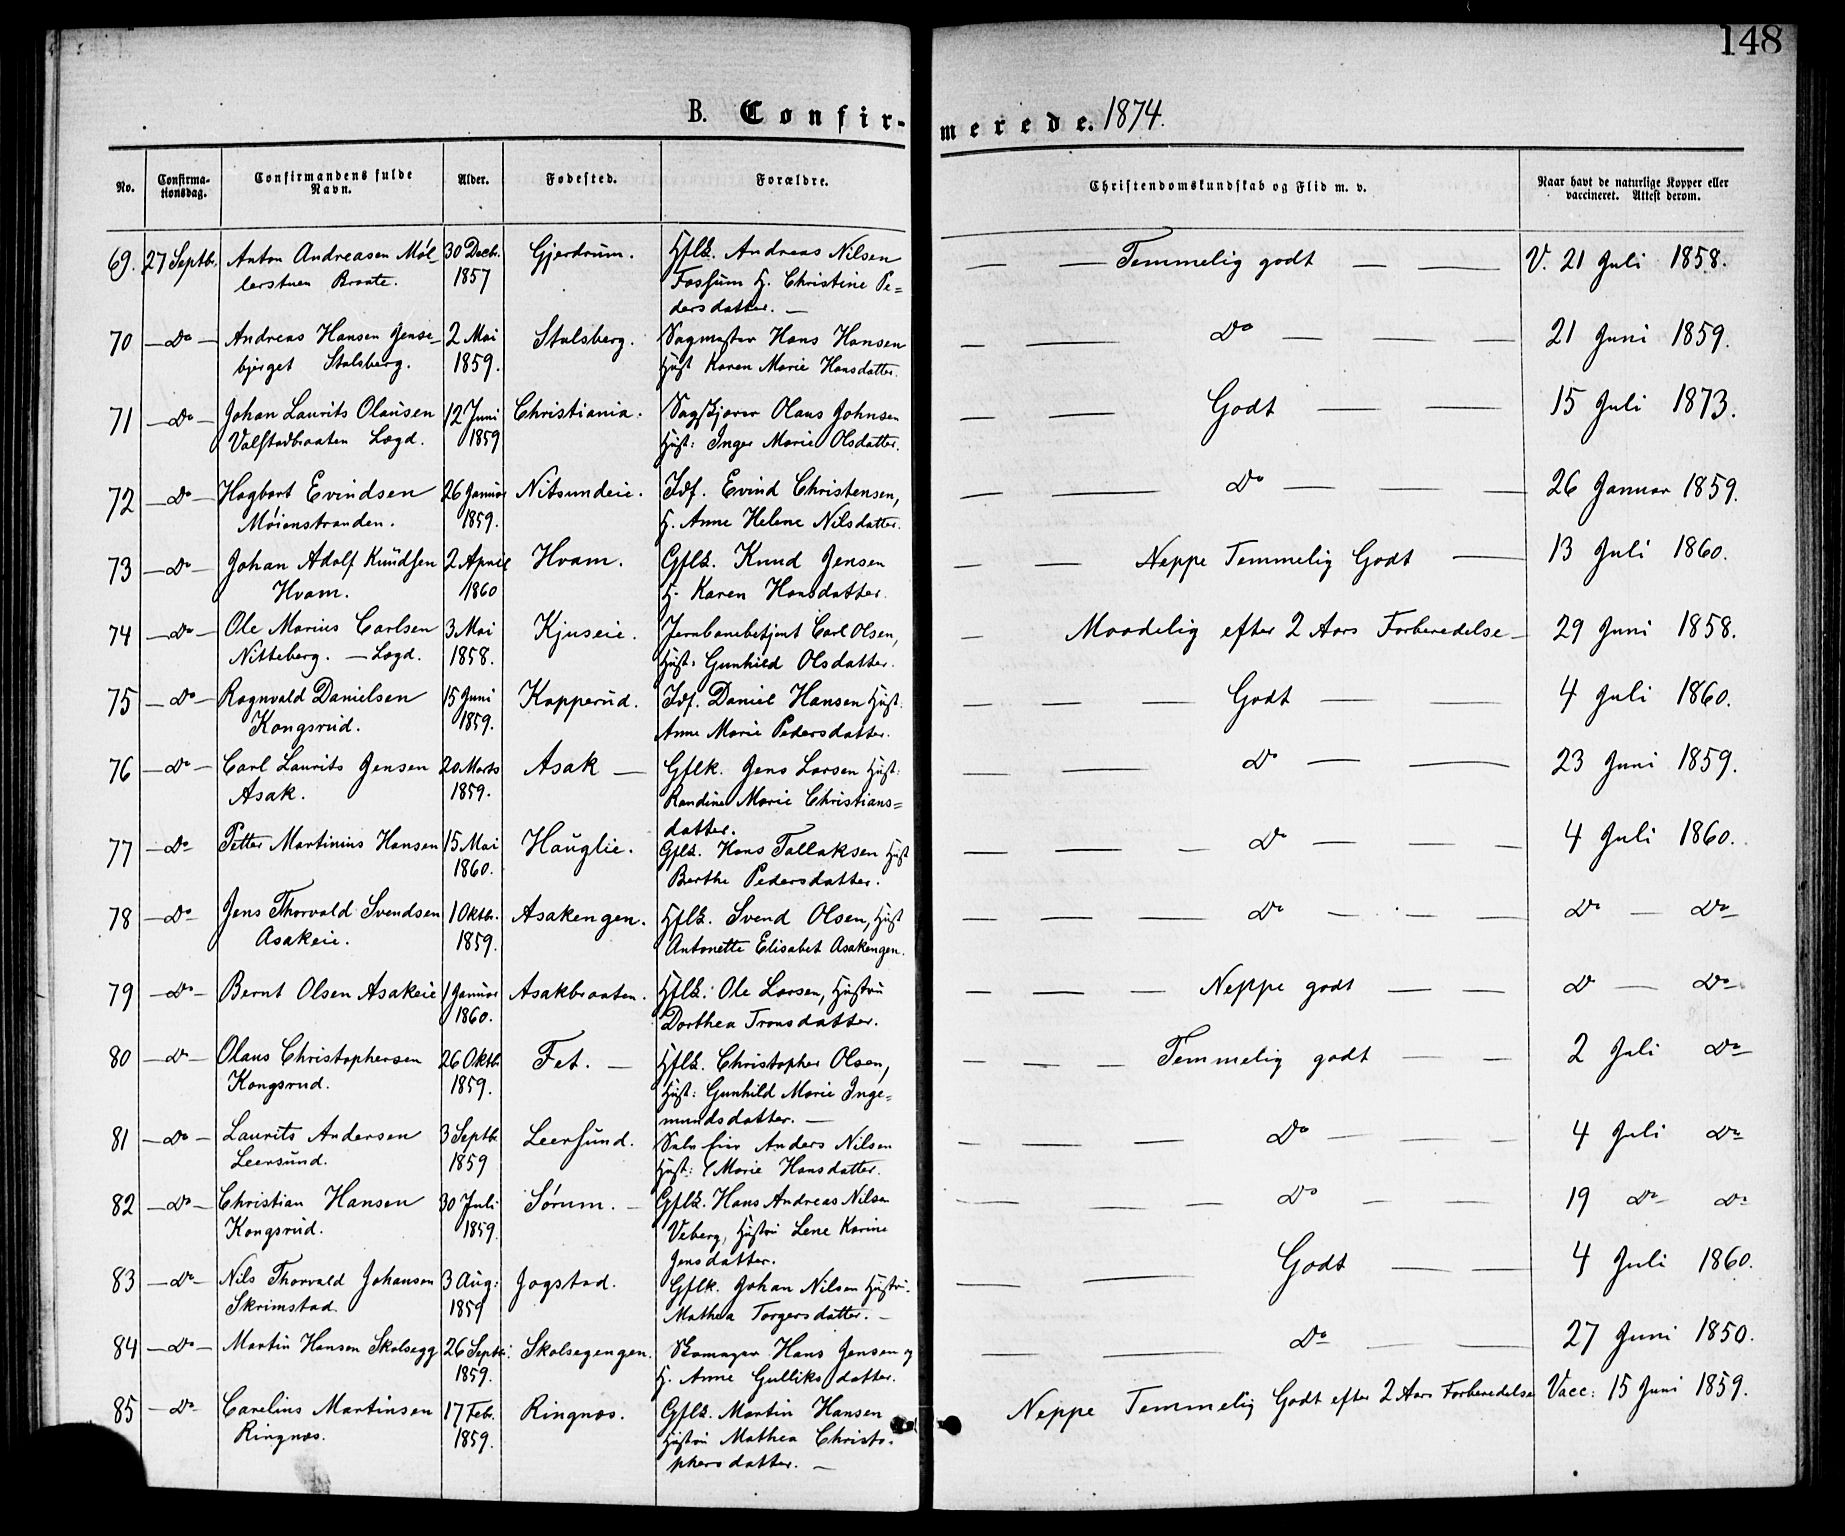 148
B. Confir-
merede. 1874.
No. Confirma-tionsdag. Confirmandens fulde Navn. Alder. Fødested. Forældre. Christendomskundskab og Flid m. v. Naar havt de naturlige Kopper eller vaccineret. Attest derom.
69. 27 Septbr. Anton Andreasen Møl- 30 Decb. Gjerdrum. Hflk. Andreas Nilsen — — Temmelig godt — — V. 21 Juli 1858.
lerstuen Braate. 1857 Fossum H. Christine Pe=
dersdatter. —
70 — Do — Andreas Hansen Jense- 2 Mai Stalsberg. Sagmester Hans Hansen — — Do — — — 21 Juni 1859.
bjerget Stalsberg. 1859. Hust Karen Marie Hansdatter.
71 — Do — Johan Laurits Olausen 12 Juni Christiania. Sagskjærer Olaus Johnsen — — Godt — — 15 Juli 1873.
Valstadbraaten Logd. 1859 Hust: Inger Marie Olsdatter.
72 — Do — Hagbart Evindsen 26 Januar Nitsundeie. Idf. Evind Christensen, — — Do — — — 26 Januar 1859.
Møienstranden. 1859. H. Anne Helene Nilsdatter.
73 — Do — Johan Adolf Knudsen 2 April Hvam. Gflk. Knud Jensen — — Neppe Temmelig Godt — 13 Juli 1860.
Hvam. 1860 H. Karen Hansdatter.
74 — Do — Ole Marius Carlsen 3 Mai Kjuseie. Jernbanebetjent Carl Olsen, — Maadelig efter 2 Aars Forberedelse — 29 Juni 1858.
Nitteberg. — Logd. 1858. Hust: Gunhild Olsdatter.
75 — Do — Ragnvald Danielsen 15 Juni Kopperud. Idf. Daniel Hansen Hust. — — — Godt — — 4 Juli 1860.
Kongsrud. 1859. Anne Marie Pedersdatter.
76 — Do — Carl Laurits Jensen 20 Marts Asak — Gflk. Jens Larsen Hust: — — Do — — 23 Juni 1859.
Asak. 1859. Randine Marie Christians=
datter.
77 — Do — Petter Martinius Hansen 15 Mai Hauglie. Gflk. Hans Tallaksen Hust — — — Do — — — 4 Juli 1860.
1860. Berthe Pedersdatter.
78 — Do — Jens Thorvald Svendsen 1 Oktbr. Asakengen. Hflk. Svend Olsen, Hust — — — Do — — — Do — Do —
Asakeie. 1859. Antonette Elisabet Asakengen.
79 — Do — Bernt Olsen Asakeie 1 Januar Asakbraaten. Hflk: Ole Larsen, Hustru — — — Neppe godt — — Do — Do —
1860. Dorthea Tronsdatter.
80 — Do — Olaus Christophersen 26 Oktb. Fet. — Hflk. Christopher Olsen, — — — Temmelig godt — — 2 Juli Do —
Kongsrud. 1859. Hust: Gunhild Marie Inge=
mundsdatter. —
81 — Do — Laurits Andersen 3 Septb. Leersund. Anders Nilsen — — — Do — — — 4 Juli Do —
Leersund. 1859 Hust: Marie Hansdatter.
82 — Do — Christian Hansen 30 Juli Sørum. — Gflk. Hans Andreas Nilsen — — — Do — — 19 Do — Do
Kongsrud. 1859. Veberg, Hustru Lene Karine
Jensdatter.
83 — Do — Nils Thorvald Johansen 3 Aug: Jogstad. Gflk. Johan Nilsen Hustru. — — Godt — — 4 Juli 1860.
Skrimstad. 1859 Mathea Torgersdatter. —
84 — Do — Martin Hansen Skolsegg 26 Septb. Skolsegengen. Skomager Hans Jensen og — — Do — — 27 Juni 1850.
1859. H. Anne Gulliksdatter.
85 — Do — Carelius Martinsen 17 Feb. Ringnos. Gflk. Martin Hansen Neppe Temmelig Godt efter 2 Aars Forberedelse Vacc: 15 Juni 1859.
Ringnos. 1859. Hustru Mathea Christo-
phersdatter. —